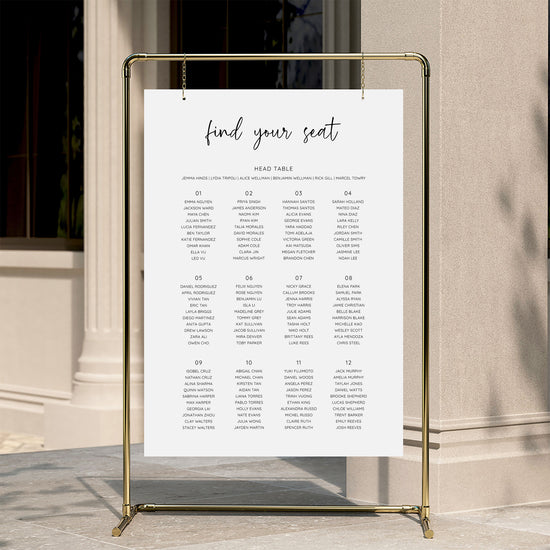 find your seat
HEAD TABLE
JEMMA HINDS | LYDIA TRIPOLI | ALICE WELLMAN | BENJAMIN WELLMAN | RICH GILL | MARCEL TOWRY
01
EMMA NGUYEN
JACKSON WARD
MAYA CHEN
JULIAN SMITH
LUCIA FERNANDEZ
BEN TAYLOR
KATIE FERNANDEZ
OMAR KHAN
ELLA VU
LEO VU
02
PRIYA SINGH
JAMES ANDERSON
NAOMI KIM
RYAN KIM
TALIA MORALES
DAVID MORALES
SOPHIE COLE
ADAM COLE
CLARA JIN
MARCUS WRIGHT
03
HANNAH SANTOS
THOMAS SANTOS
ALICIA EVANS
GEORGE EVANS
YARA HADDAD
TOMI ADELAJA
VICTORIA GREEN
KAI MATSUDA
MEGAN FLETCHER
BRANDON CHEN
04
SARAH HOLLAND
MATEO DIAZ
NINA DIAZ
RILEY CHEN
JORDAN SMITH
CAMILLE SMITH
OLIVER SIMS
JASMINE LEE
NOAH LEE
05
DANIEL RODRIGUEZ
APRIL RODRIGUEZ
VIVIAN TAN
ERIC TAN
LAYLA BRIGGS
DIEGO MARTINEZ
ANITA GUPTA
DREW LAWSON
ZARA ALI
OWEN CHO
06
FELIX NGUYEN
ROSE NGUYEN
BENJAMIN LU
ISLA LI
MADELINE GREY
TOMMY GREY
KAT SULLIVAN
JACOB SULLIVAN
MIRA DENVER
TOBY PARKER
07
NICKY GRACE
CALLUM BROOKS
JENNA HARRIS
TROY HARRIS
JULIE ADAMS
SEAN ADAMS
TASHA HOLT
NIKO HOLT
BRITTANY REES
LUKE REES
08
ELENA PARK
SAMUEL PARK
ALYSSA RYAN
JAMIE CHRISTIAN
BELLE BLAKE
HARRISON BLAKE
MICHELLE KAO
WESLEY SCOTT
KYLA MENDOZA
CHRIS STEEL
09
ISOBEL CRUZ
NATHAN CRUZ
ALINA SHARMA
QUINN WATSON
SABRINA HARPER
MAX HARPER
GEORGIA LAI
JONATHAN ZHOU
CLAY WALTERS
STACEY WALTERS
10
ABIGAIL CHAN
MICHAEL CHAN
KIRSTEN TAN
AIDAN TAN
LIANA TORRES
PABLO TORRES
HOLLY EVANS
NATE EVANS
JULIA WONG
JAYDEN MARTIN
11
YUKI FUJIMOTO
DANIEL WOODS
ANGELA PEREZ
JASON PEREZ
TRINH VUONG
ETHAN KING
ALEXANDRA RUSSO
MICHEL RUSSO
CLAIRE RUTH
SPENCER RUTH
12
JACK MURPHY
AMY MURPHY
TAYLAH JONES
DANIEL WATTS
BROOKE SHEPHERD
LUCAS SHEPHERD
CHLOE WILLIAMS
TORI BARKER
EMILY REEVES
JOSH REEVES